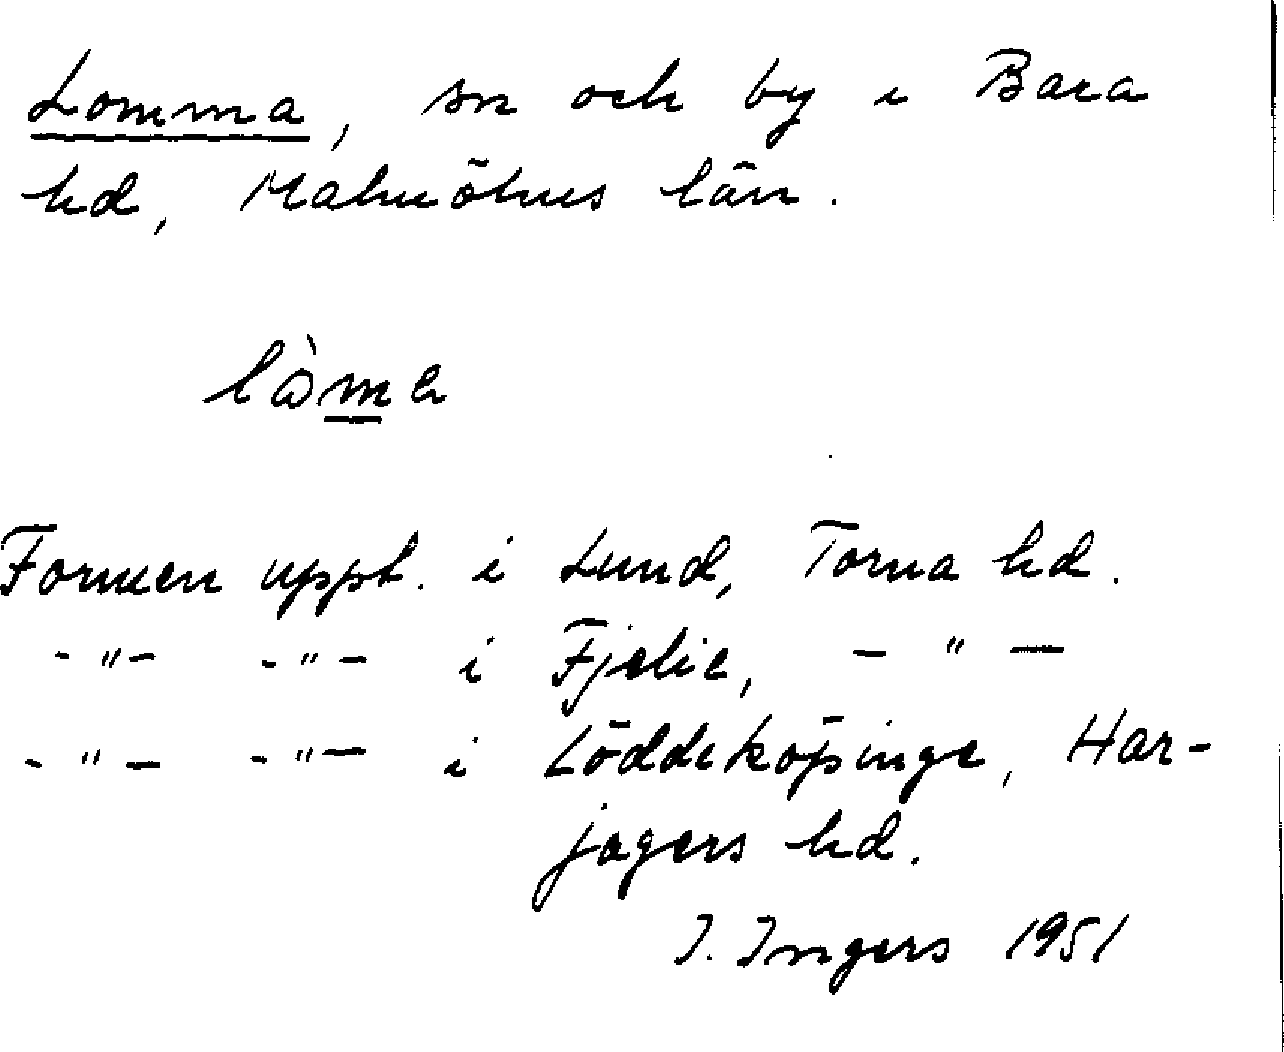 Lomma, sn och by i Bara
hd, Malmöhus län.
lòma
Formen uppt. i Lund, Torna hd.
-"- -"- i Fjelie, -"-
-"- -"- i Löddeköpinge, Har-
jagers hd.
I. Ingers 1951